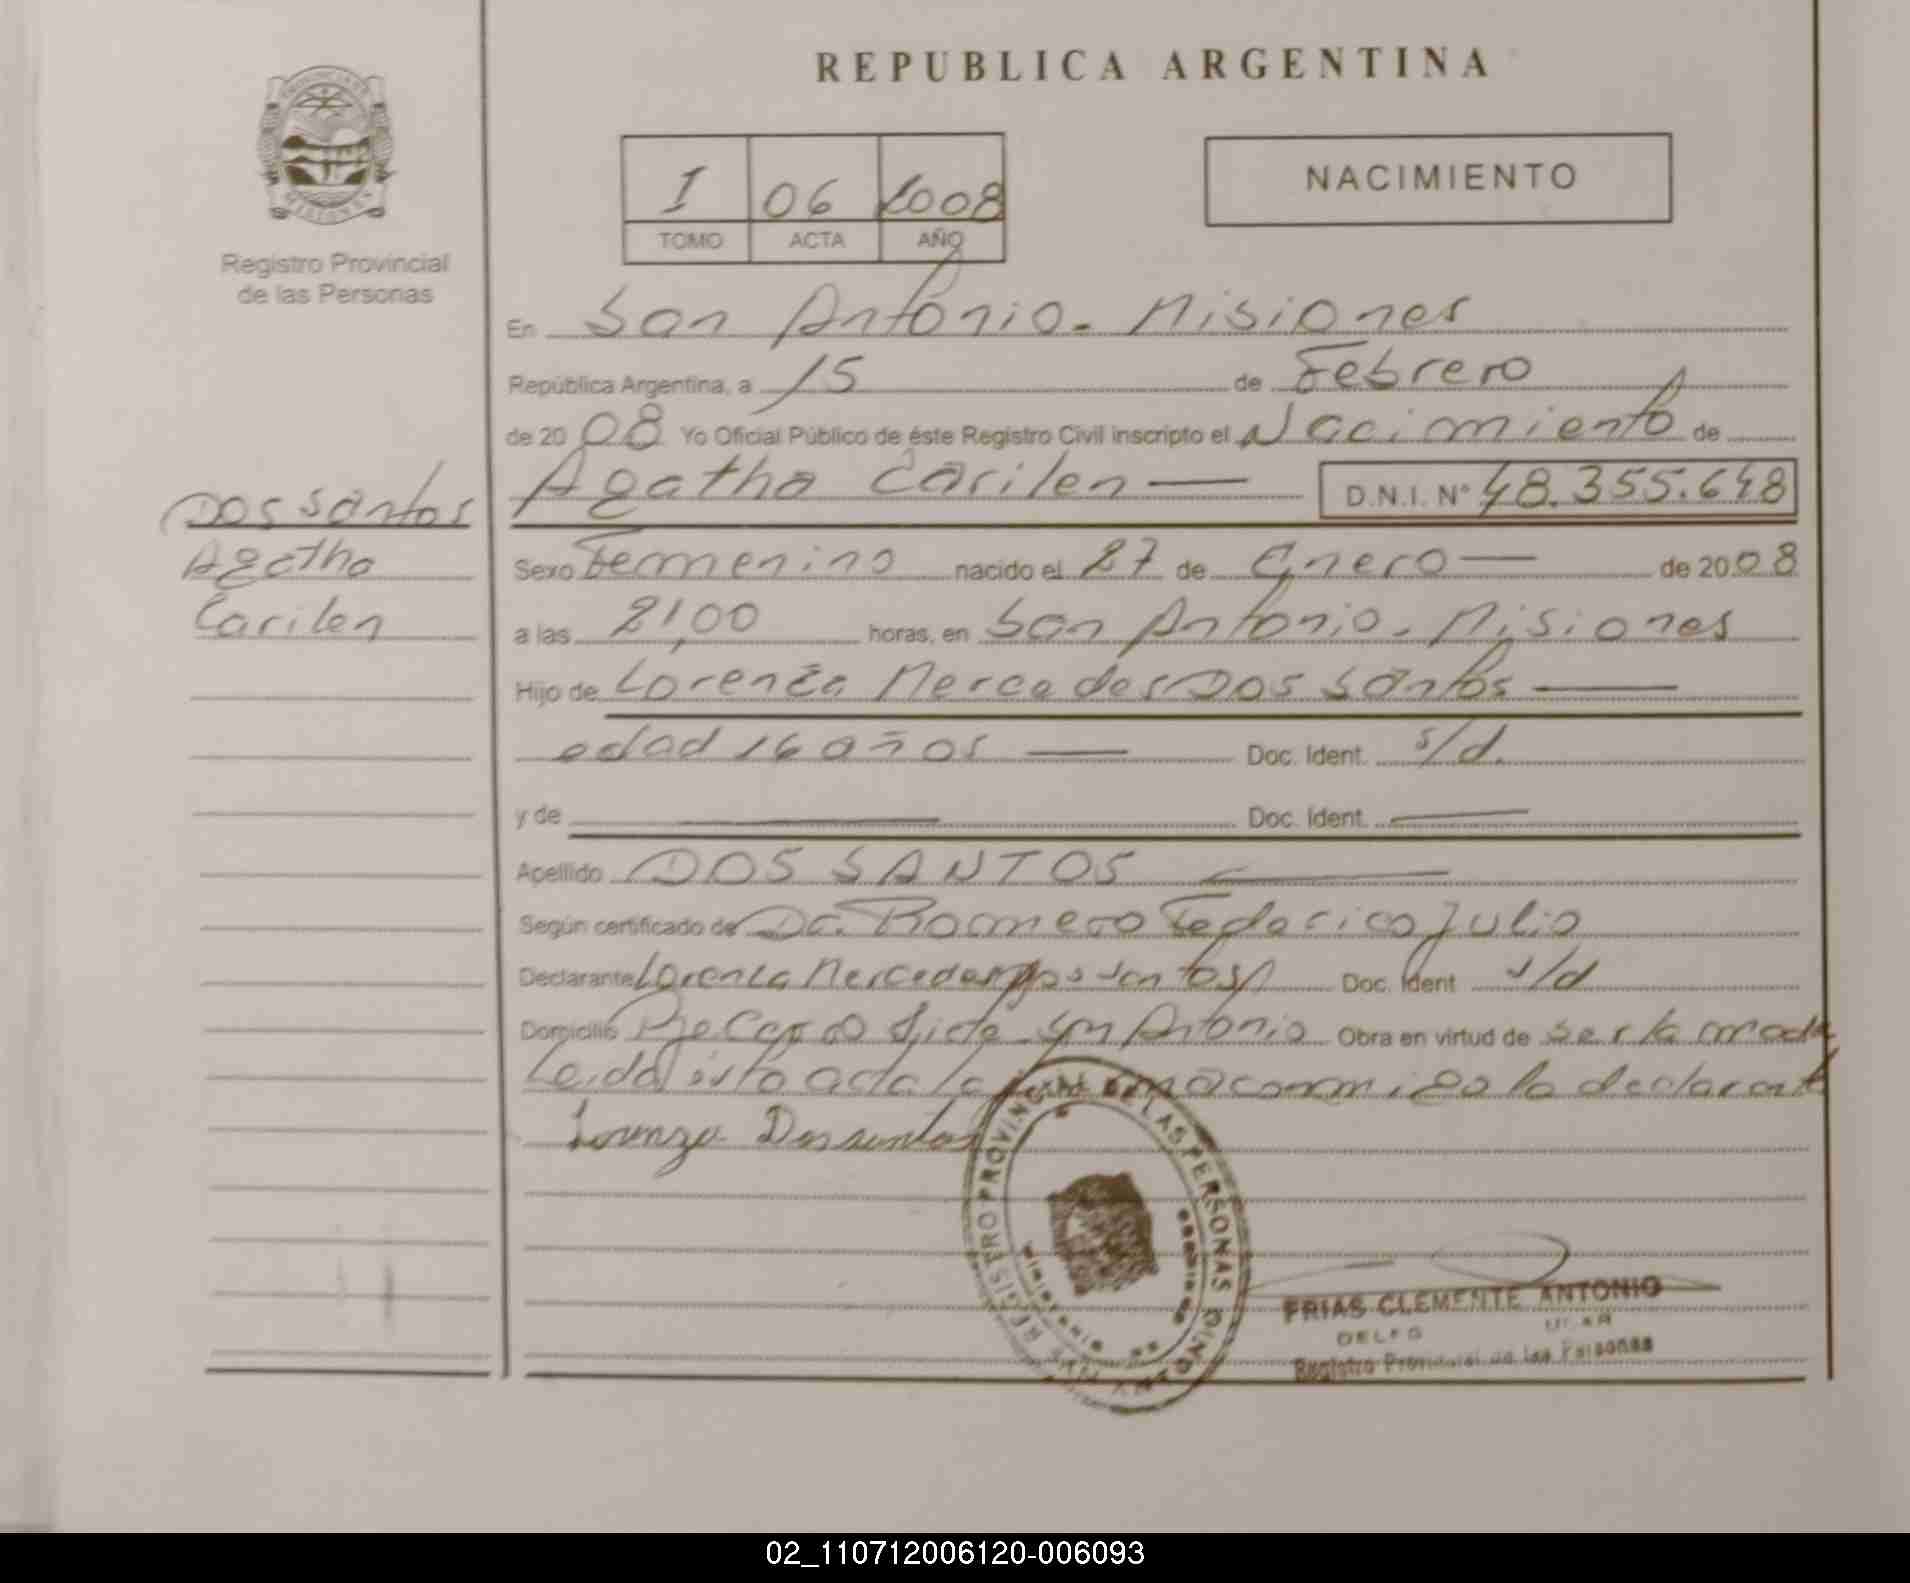 REPUBLICA ARGENTINA
PROVINCIA DE MISIONES
Registro Provincial
de las Personas
I 06 2008
TOMO ACTA AÑO
NACIMIENTO
En San Antonio - Misiones
República Argentina, a 15 de Febrero
de 2008 Yo Oficial Público de éste Registro Civil inscripto el Nacimiento de
Agatha Carilen — D.N.I. N° 48.355.648
Dos Santos
Agatha
Carilen
Sexo Femenino nacido el 27 de Enero — de 2008
a las 21,00 horas, en San Antonio - Misiones
Hijo de Lorenza Mercedes Dos Santos —
edad 16 años — Doc. Ident. s/d.
y de — Doc. Ident. —
Apellido DOS SANTOS —
Según certificado de Dr. Romero Federico Julio
Declarante Lorenza Mercedes Dos Santos Doc. Ident s/d
Domicilio San Antonio Obra en virtud de ser la madre
Leída esta acta la firma conmigo la declarante
Lorenza Dos santos
REGISTRO PROVINCIAL DE LAS PERSONAS
FRIAS CLEMENTE ANTONIO
Registro Provincial de las Personas
02_110712006120-006093